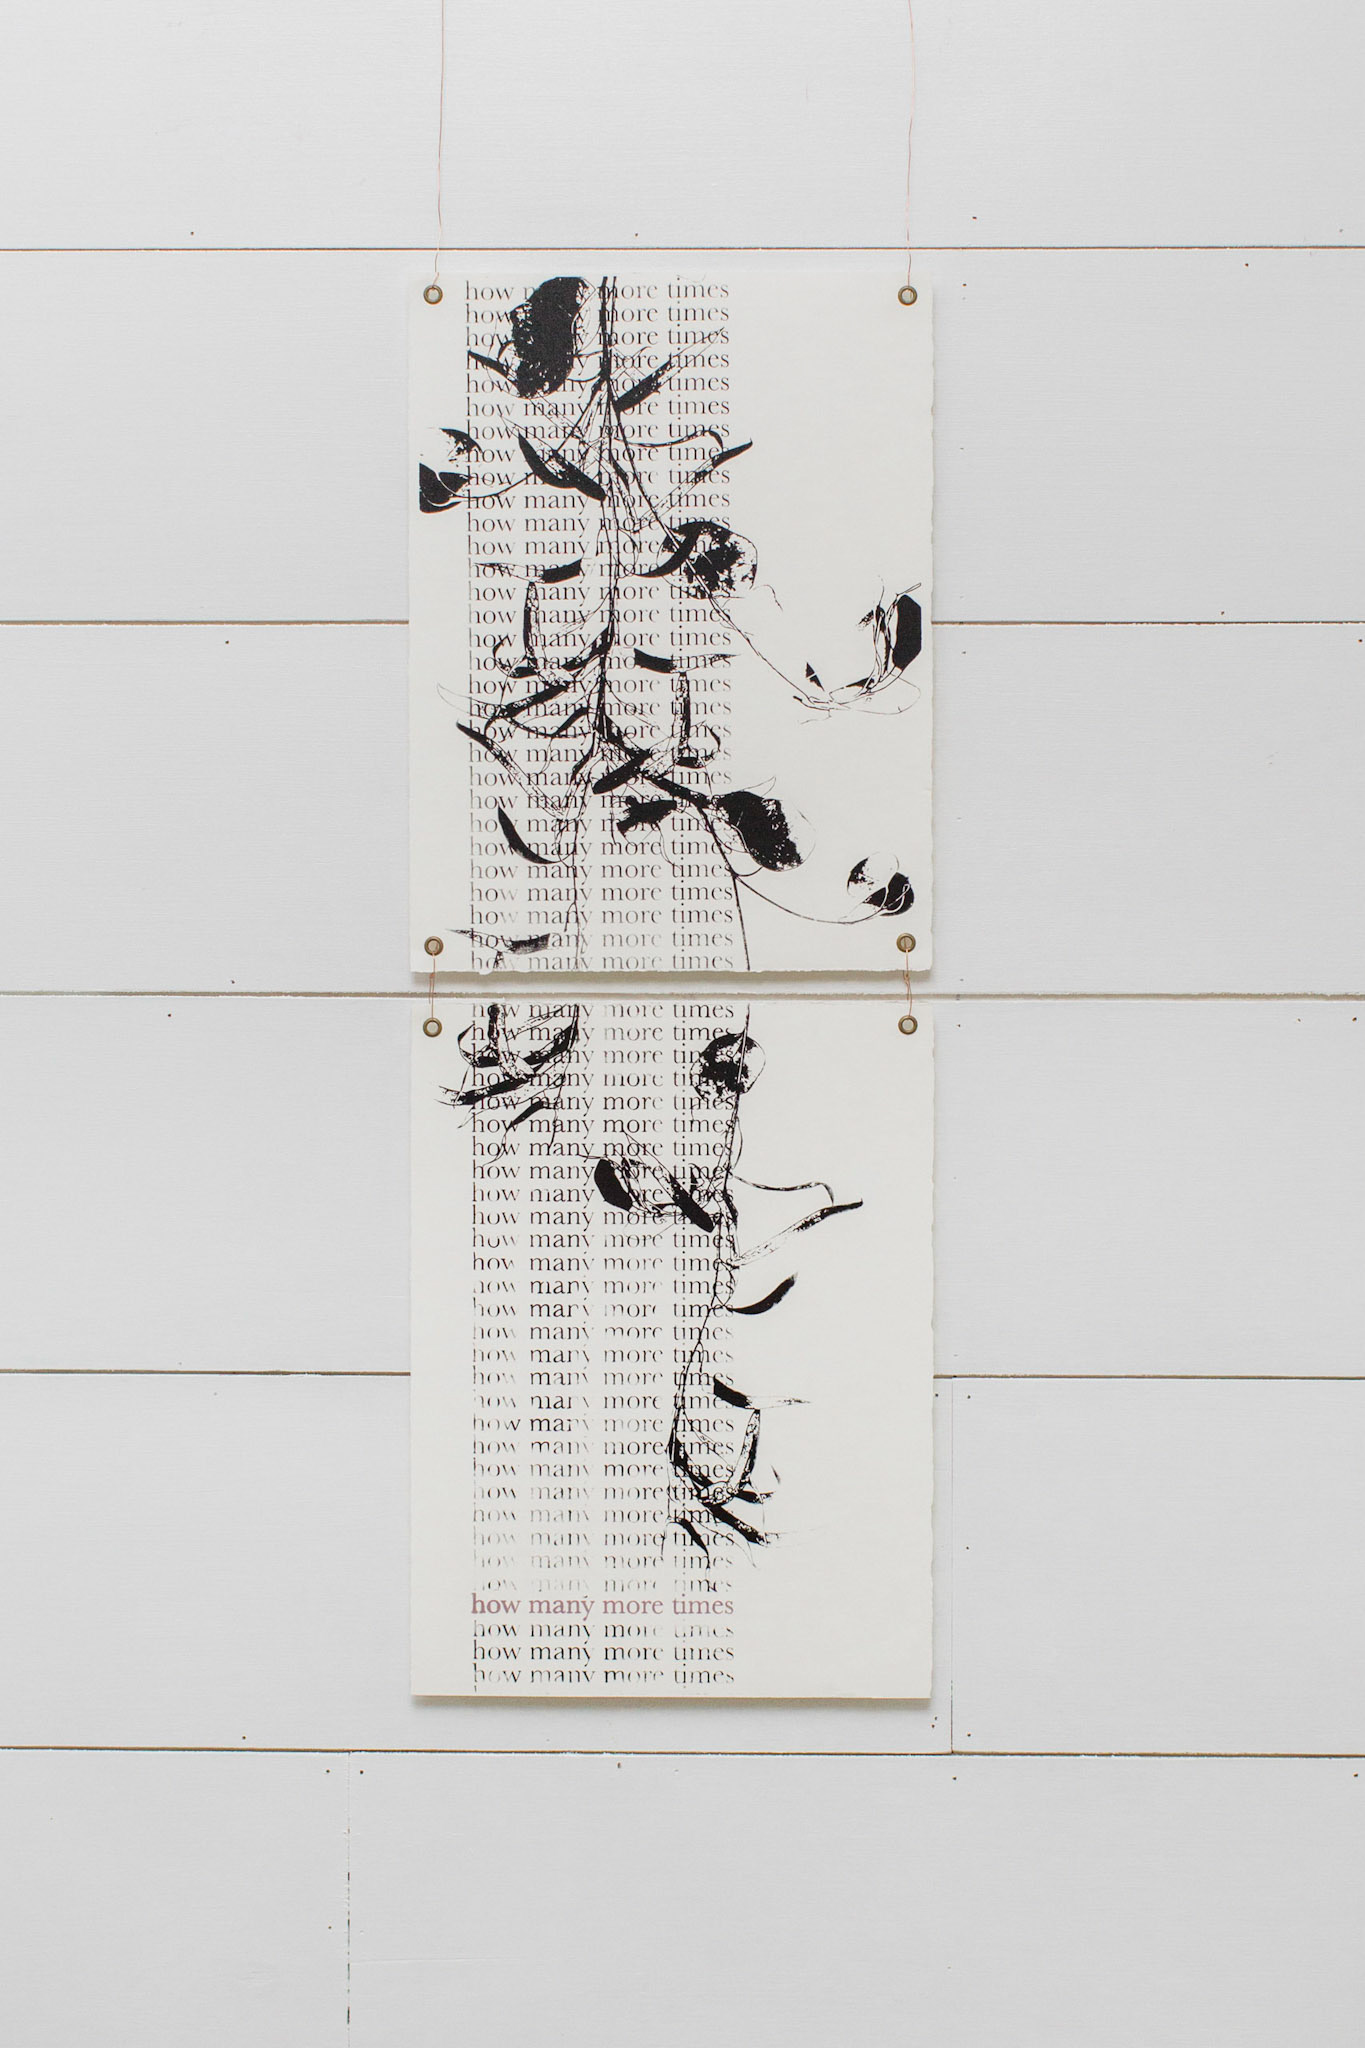 how many more times
how many more times
how many more times
how many more times
how many more times
how many more times
how many more times
how many more times
how many more times
how many more times
how many more times
how many more times
how many more times
how many more times
how many more times
how many more times
how many more times
how many more times
how many more times
how many more times
how many more times
how many more times
how many more times
how many more times
how many more times
how many more times
how many more times
how many more times
how many more times
how many more times
how many more times
how many more times
how many more times
how many more times
how many more times
how many more times
how many more times
how many more times
how many more times
how many more times
how many more times
how many more times
how many more times
how many more times
how many more times
how many more times
how many more times
how many more times
how many more times
how many more times
how many more times
how many more times
how many more times
how many more times
how many more times
how many more times
how many more times
how many more times
how many more times
how many more times